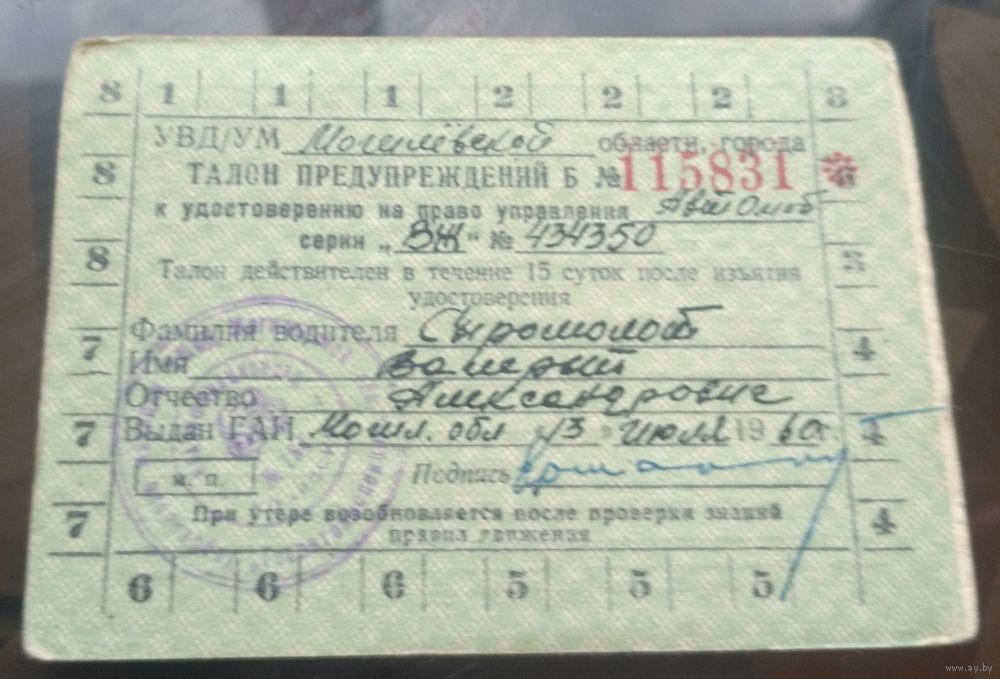 8 1 1 1 2 2 2 3
УВД/УМ Могилёвской области, города
8 ТАЛОН ПРЕДУПРЕЖДЕНИЙ Б № 115831
к удостоверению на право управления Автомоб
серия „ВЖ" № 434350
8 Талон действителен в течение 15 суток после изъятия 3
удостоверения
7 Фамилия водителя Сыромолот 4
Имя Валерий
Отчество Александрович
7 Выдан ГАИ Могил. обл 13 " июля 1960г 4
м. п. Подпись
7 При утере возобновляется после проверки знаний 4
правил движения
6 6 6 5 5 5
www.ay.by